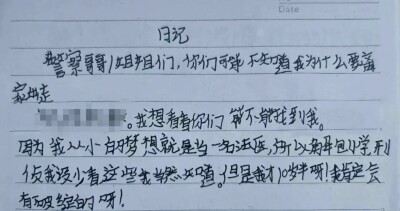 Date
日记
警察哥哥/姐姐们,你们可能不知道我为什么要离
家出走
。我想看看你们能不能找到我。
因为我从小的梦想就是当一名法医,所以 小学刑
侦我没少看这些我当然知道。但是我才10岁半呀!我肯定会
有破绽的呀!